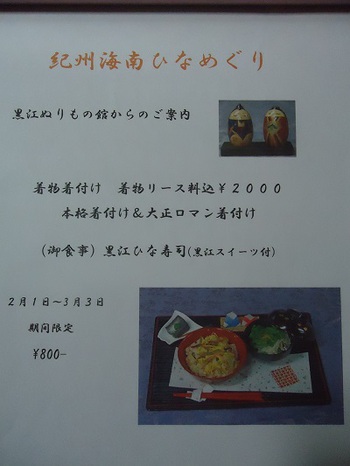 紀州海南ひなめぐり
黒江ぬりもの館からのご案内
着物着付け 着物リース料込¥2000
本格着付け&大正ロマン着付け
(御食事)黒江ひな寿司(黒江スイーツ付)
2月1日~3月3日
期間限定
¥800-